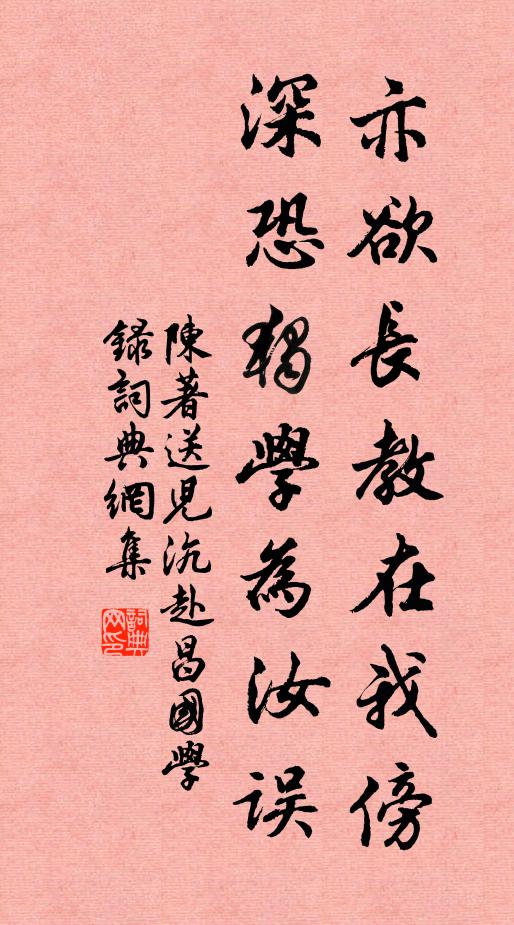 亦欲長教在我傍
深恐獨學為汝誤
陳著送兒沆赴昌國學
録詞典網集
詞典网印